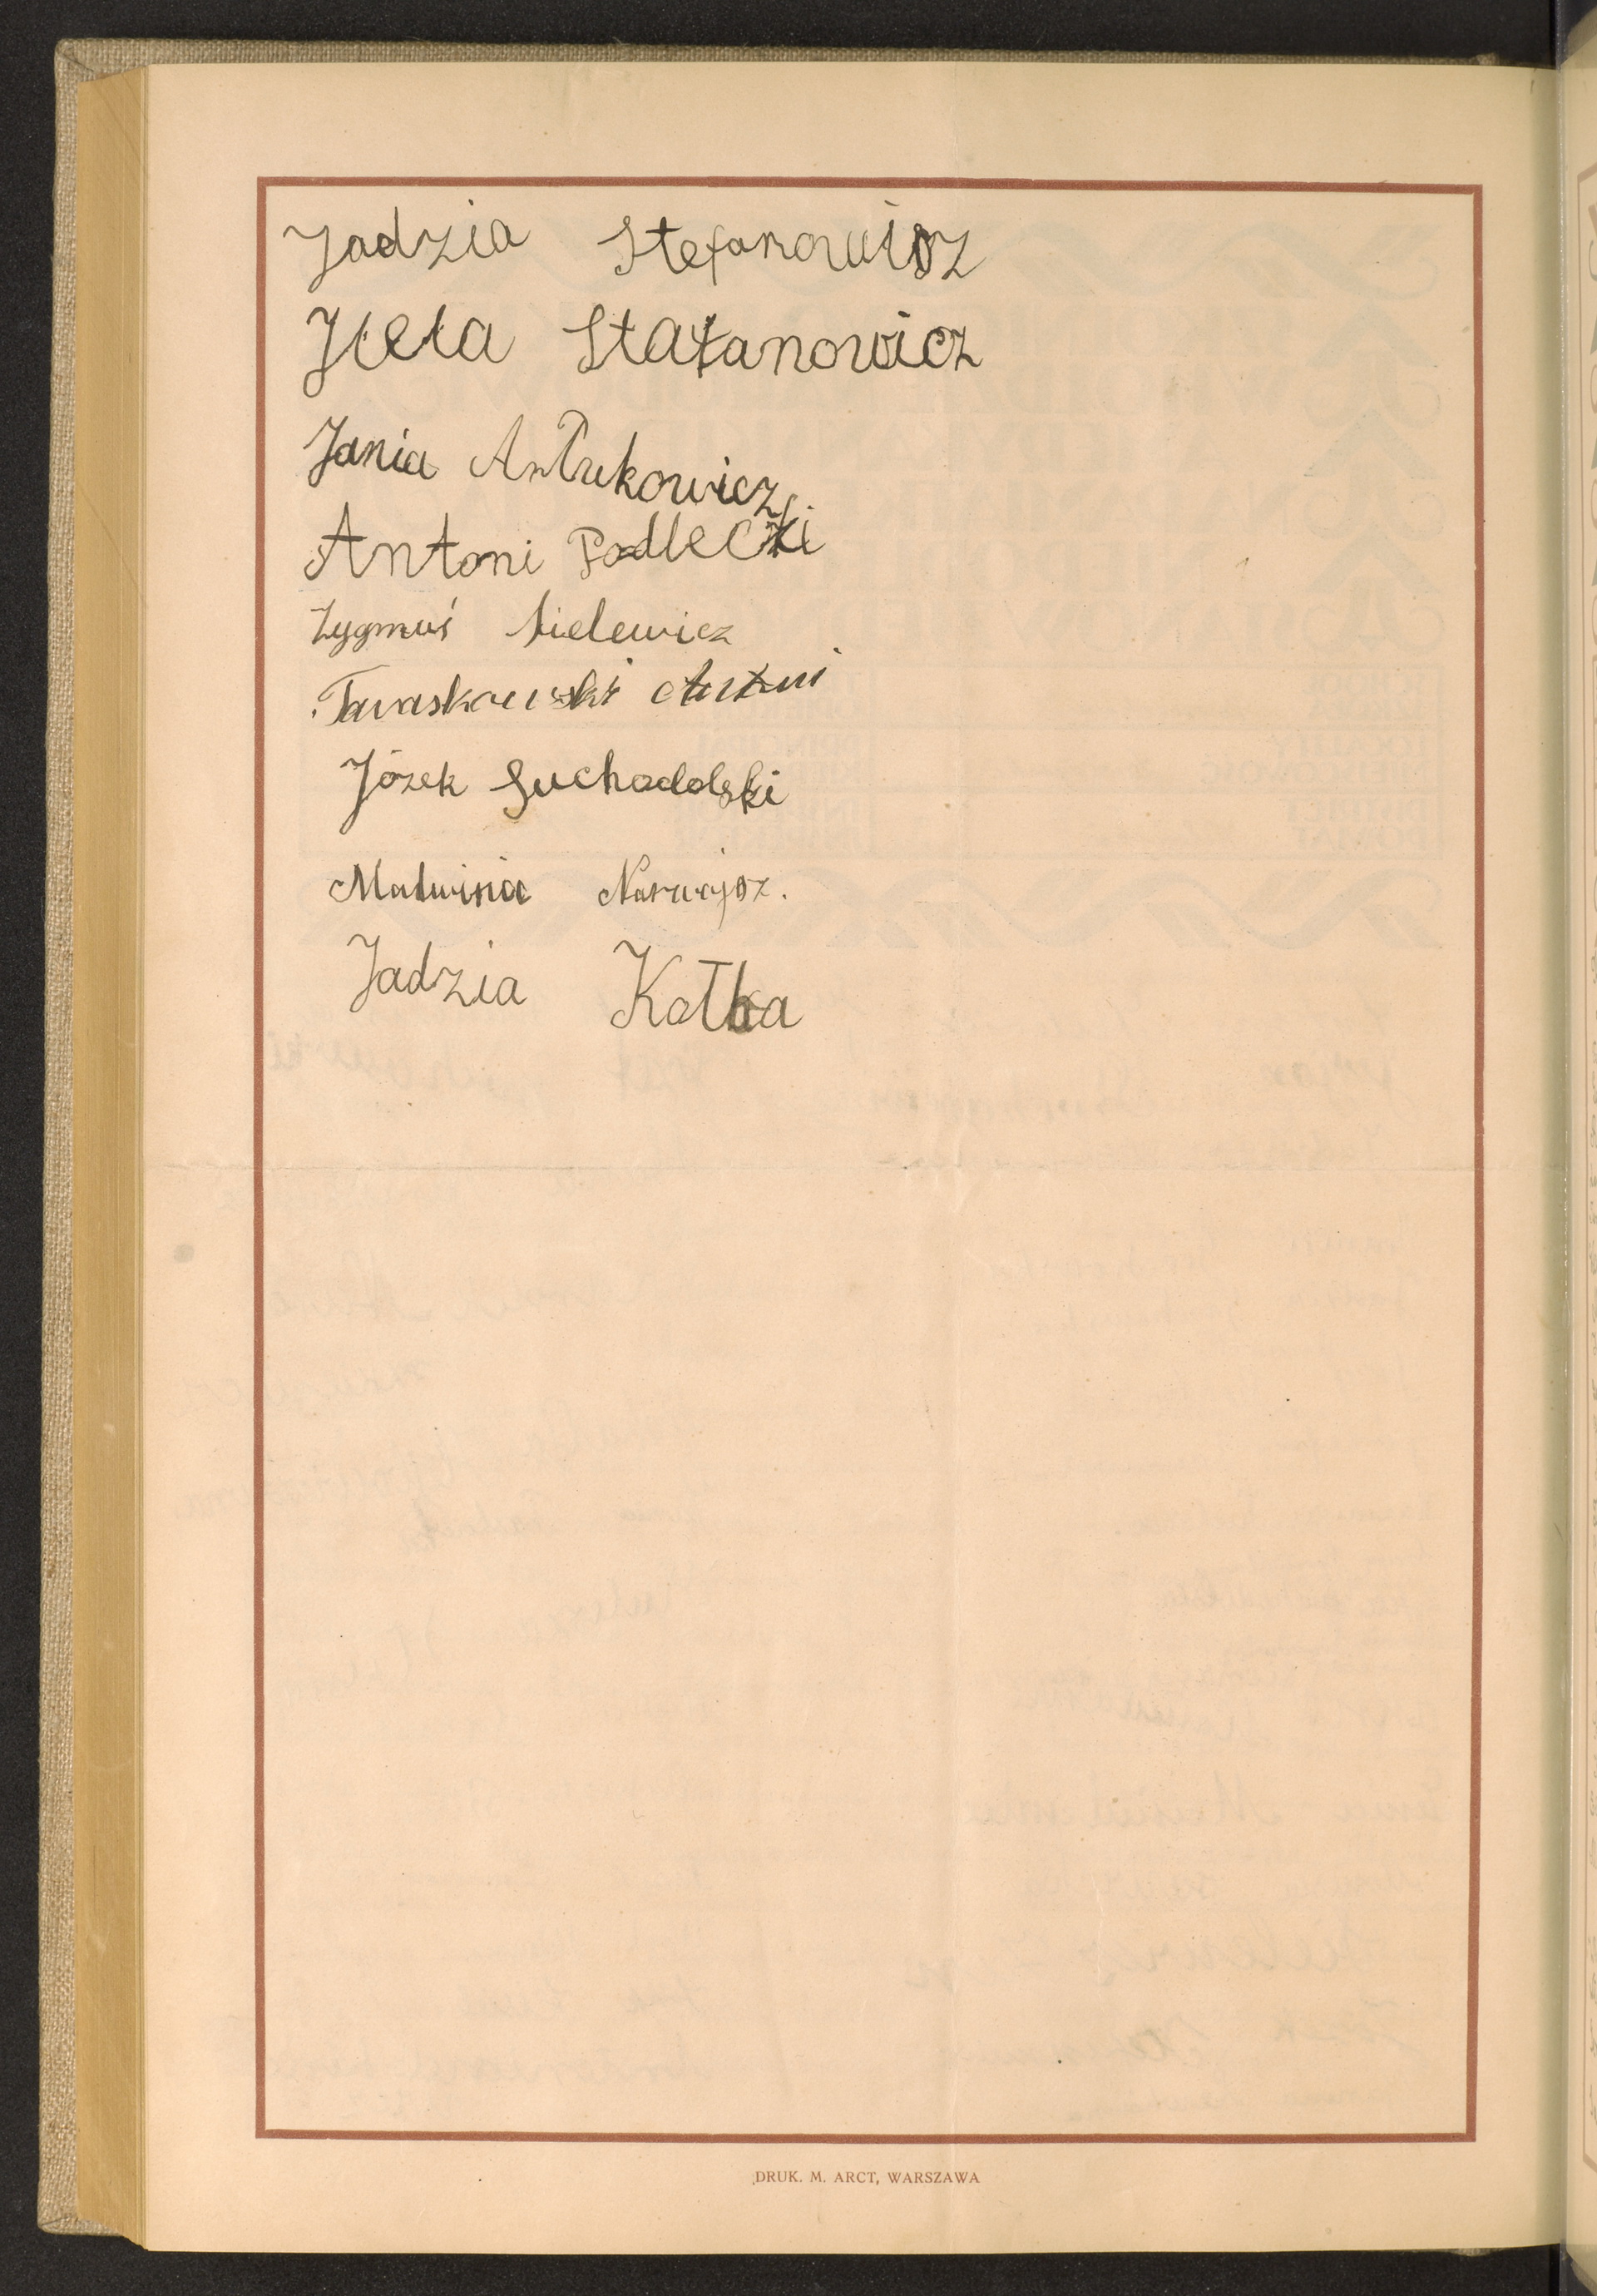 Jadzia Stefanowicz
Hela Stafanowicz
Jania Antukowicz
Antoni Podlecki
Zygmuś Sielewicz
Taraskowski Antoni
Józek Suchodolski
Malwina Narwojsz.
Jadzia Kotka
DRUK. M. ARCT, WARSZAWA